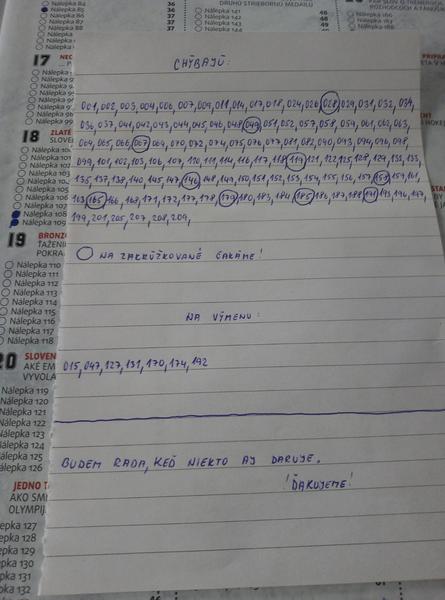 Nálepka 84 36
Nálepka 85 36
Nálepka 86 36
Nálepka 87 37
Nálepka 88
DRUHÚ STRIEBORNÚ MEDAILU
Nálepka 141 46
Nálepka 142 46
Nálepka 144
17 NEC
18 ZLATÉ
Nálepka 105
Nálepka 106
Nálepka 107
Nálepka 108
Nálepka 109
19 BRONZO
ŤAŽENIE
POKRA
Nálepka 110
Nálepka 111
Nálepka 112
Nálepka 113
Nálepka 114
Nálepka 115
Nálepka 116
Nálepka 117
Nálepka 118
20 SLOVEN
AKÉ EM
VYVOLA
Nálepka 119
Nálepka 120
Nálepka 121
Nálepka 122
Nálepka 123
Nálepka 124
Nálepka 125
Nálepka 126
JEDNO T
AKO SME
OLYMPIJ
epka 127
epka 128
epka 129
epka 130
epka 131
epka 132
CHÝBAJÚ:
001, 002, 003, 004, 006, 007, 009, 011, 014, 017, 018, 024, 026, 028, 029, 031, 032, 034,
036, 037, 041, 042, 043, 044, 045, 046, 048, 049, 051, 052, 057, 058, 059, 061, 062, 063,
064, 065, 066, 067, 069, 070, 072, 074, 075, 076, 077, 081, 082, 090, 093, 094, 096, 098,
099, 101, 102, 103, 106, 107, 110, 111, 114, 116, 117, 118, 119, 121, 122, 125, 128, 129, 132, 133,
135, 137, 138, 140, 145, 147, 146, 148, 149, 150, 151, 152, 153, 154, 155, 156, 157, 158, 159, 161,
163, 165, 166, 168, 171, 172, 177, 178, 179, 180, 183, 184, 185, 186, 187, 188, 191, 193, 196, 197,
199, 201, 205, 207, 208, 209,
NA ZAKRÚŽKOVANÉ ČAKÁME!
NA VÝMENU:
015, 047, 127, 131, 170, 174, 192
BUDEM RADA, KEĎ NIEKTO AJ DARUJE.
!ĎAKUJEME!